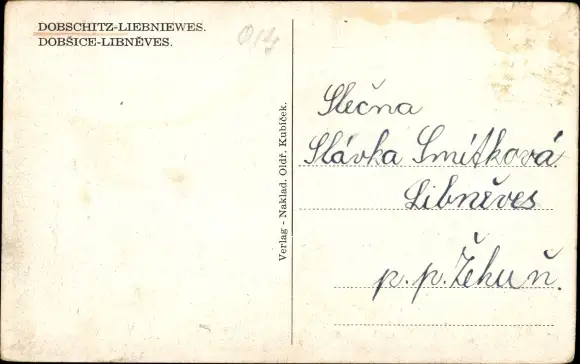 DOBSCHITZ-LIEBNIEWES.
DOBŠICE-LIBNĚVES.
Verlag - Naklad. Oldř. Kubíček.
Slečna
Slávka Smítková
Libněves
p. p. Žehuň.